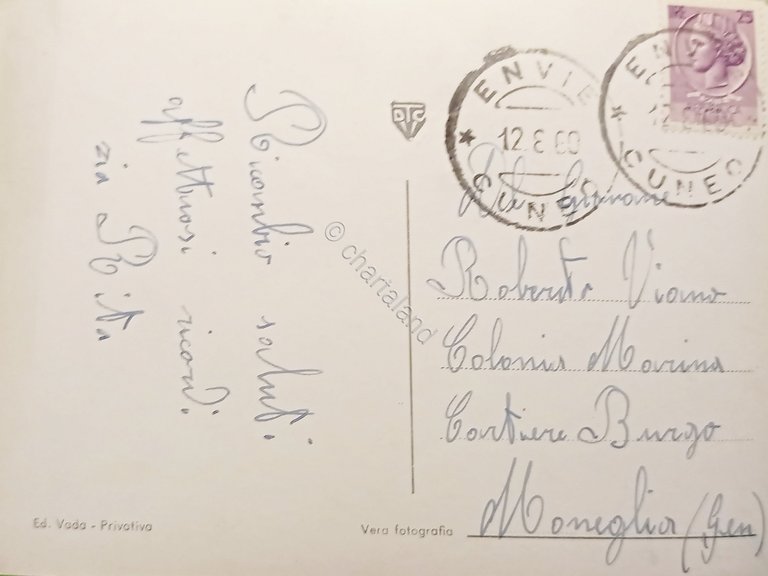 Ricambio saluti.
affettuosi ricordi.
zia Rita
DTC
25
ENVIE
12.8.60
CUNEO
ENVIE
CUNEO
Giovane
Roberto Viano
Colonia Marina
Cartiere Burgo
Moneglia (Gen)
© chartaland
Ed. Vada - Privativa
Vera fotografia